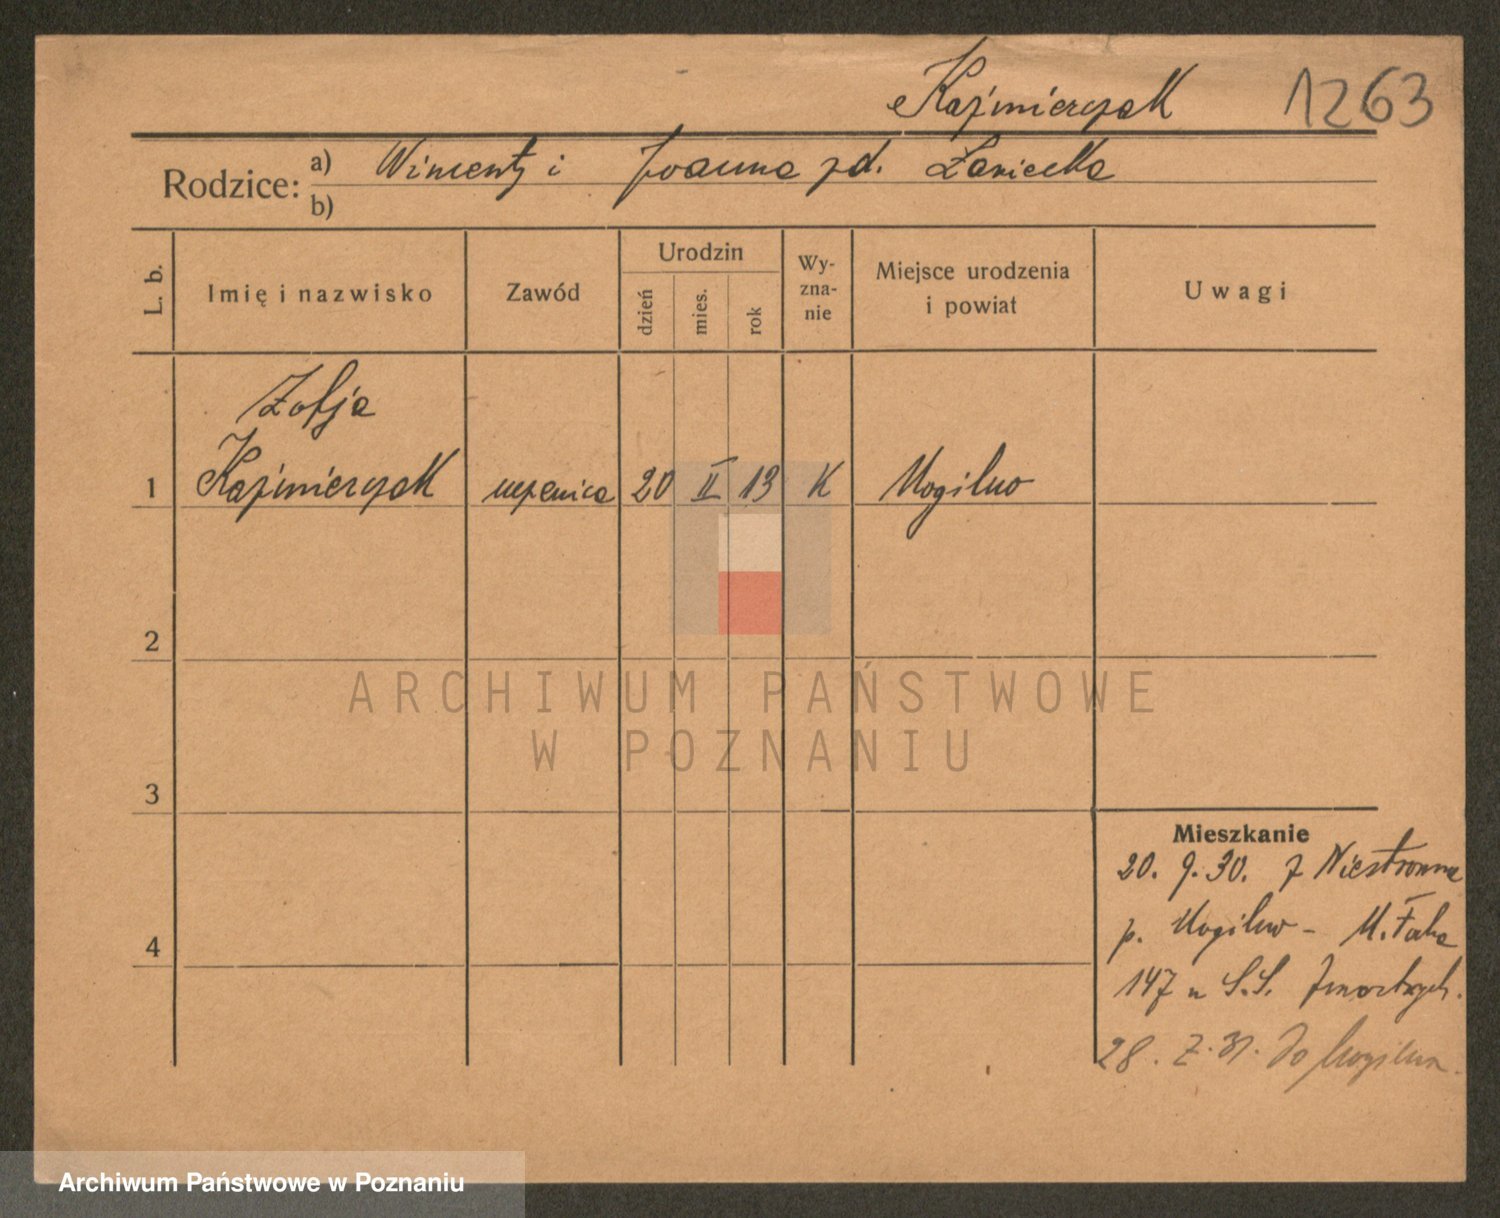 Kaźmierczak 1263
Rodzice: a) Wincenty i Joanna zd. Łaniecka
b)
L. b. Imię i nazwisko Zawód Urodzin dzień mies. rok Wy-zna-nie Miejsce urodzenia i powiat Uwagi
Zofja
1 Kaźmierczak uczenica 20 II 13 K Mogilno
2
ARCHIWUM PAŃSTWOWE
W POZNANIU
3
Mieszkanie
20. 9. 30. z Niestronna
p. Mogilno - M.
4
147 u S.S. Zmartwych.
28. 2. 31. do Mogilna.
Archiwum Państwowe w Poznaniu